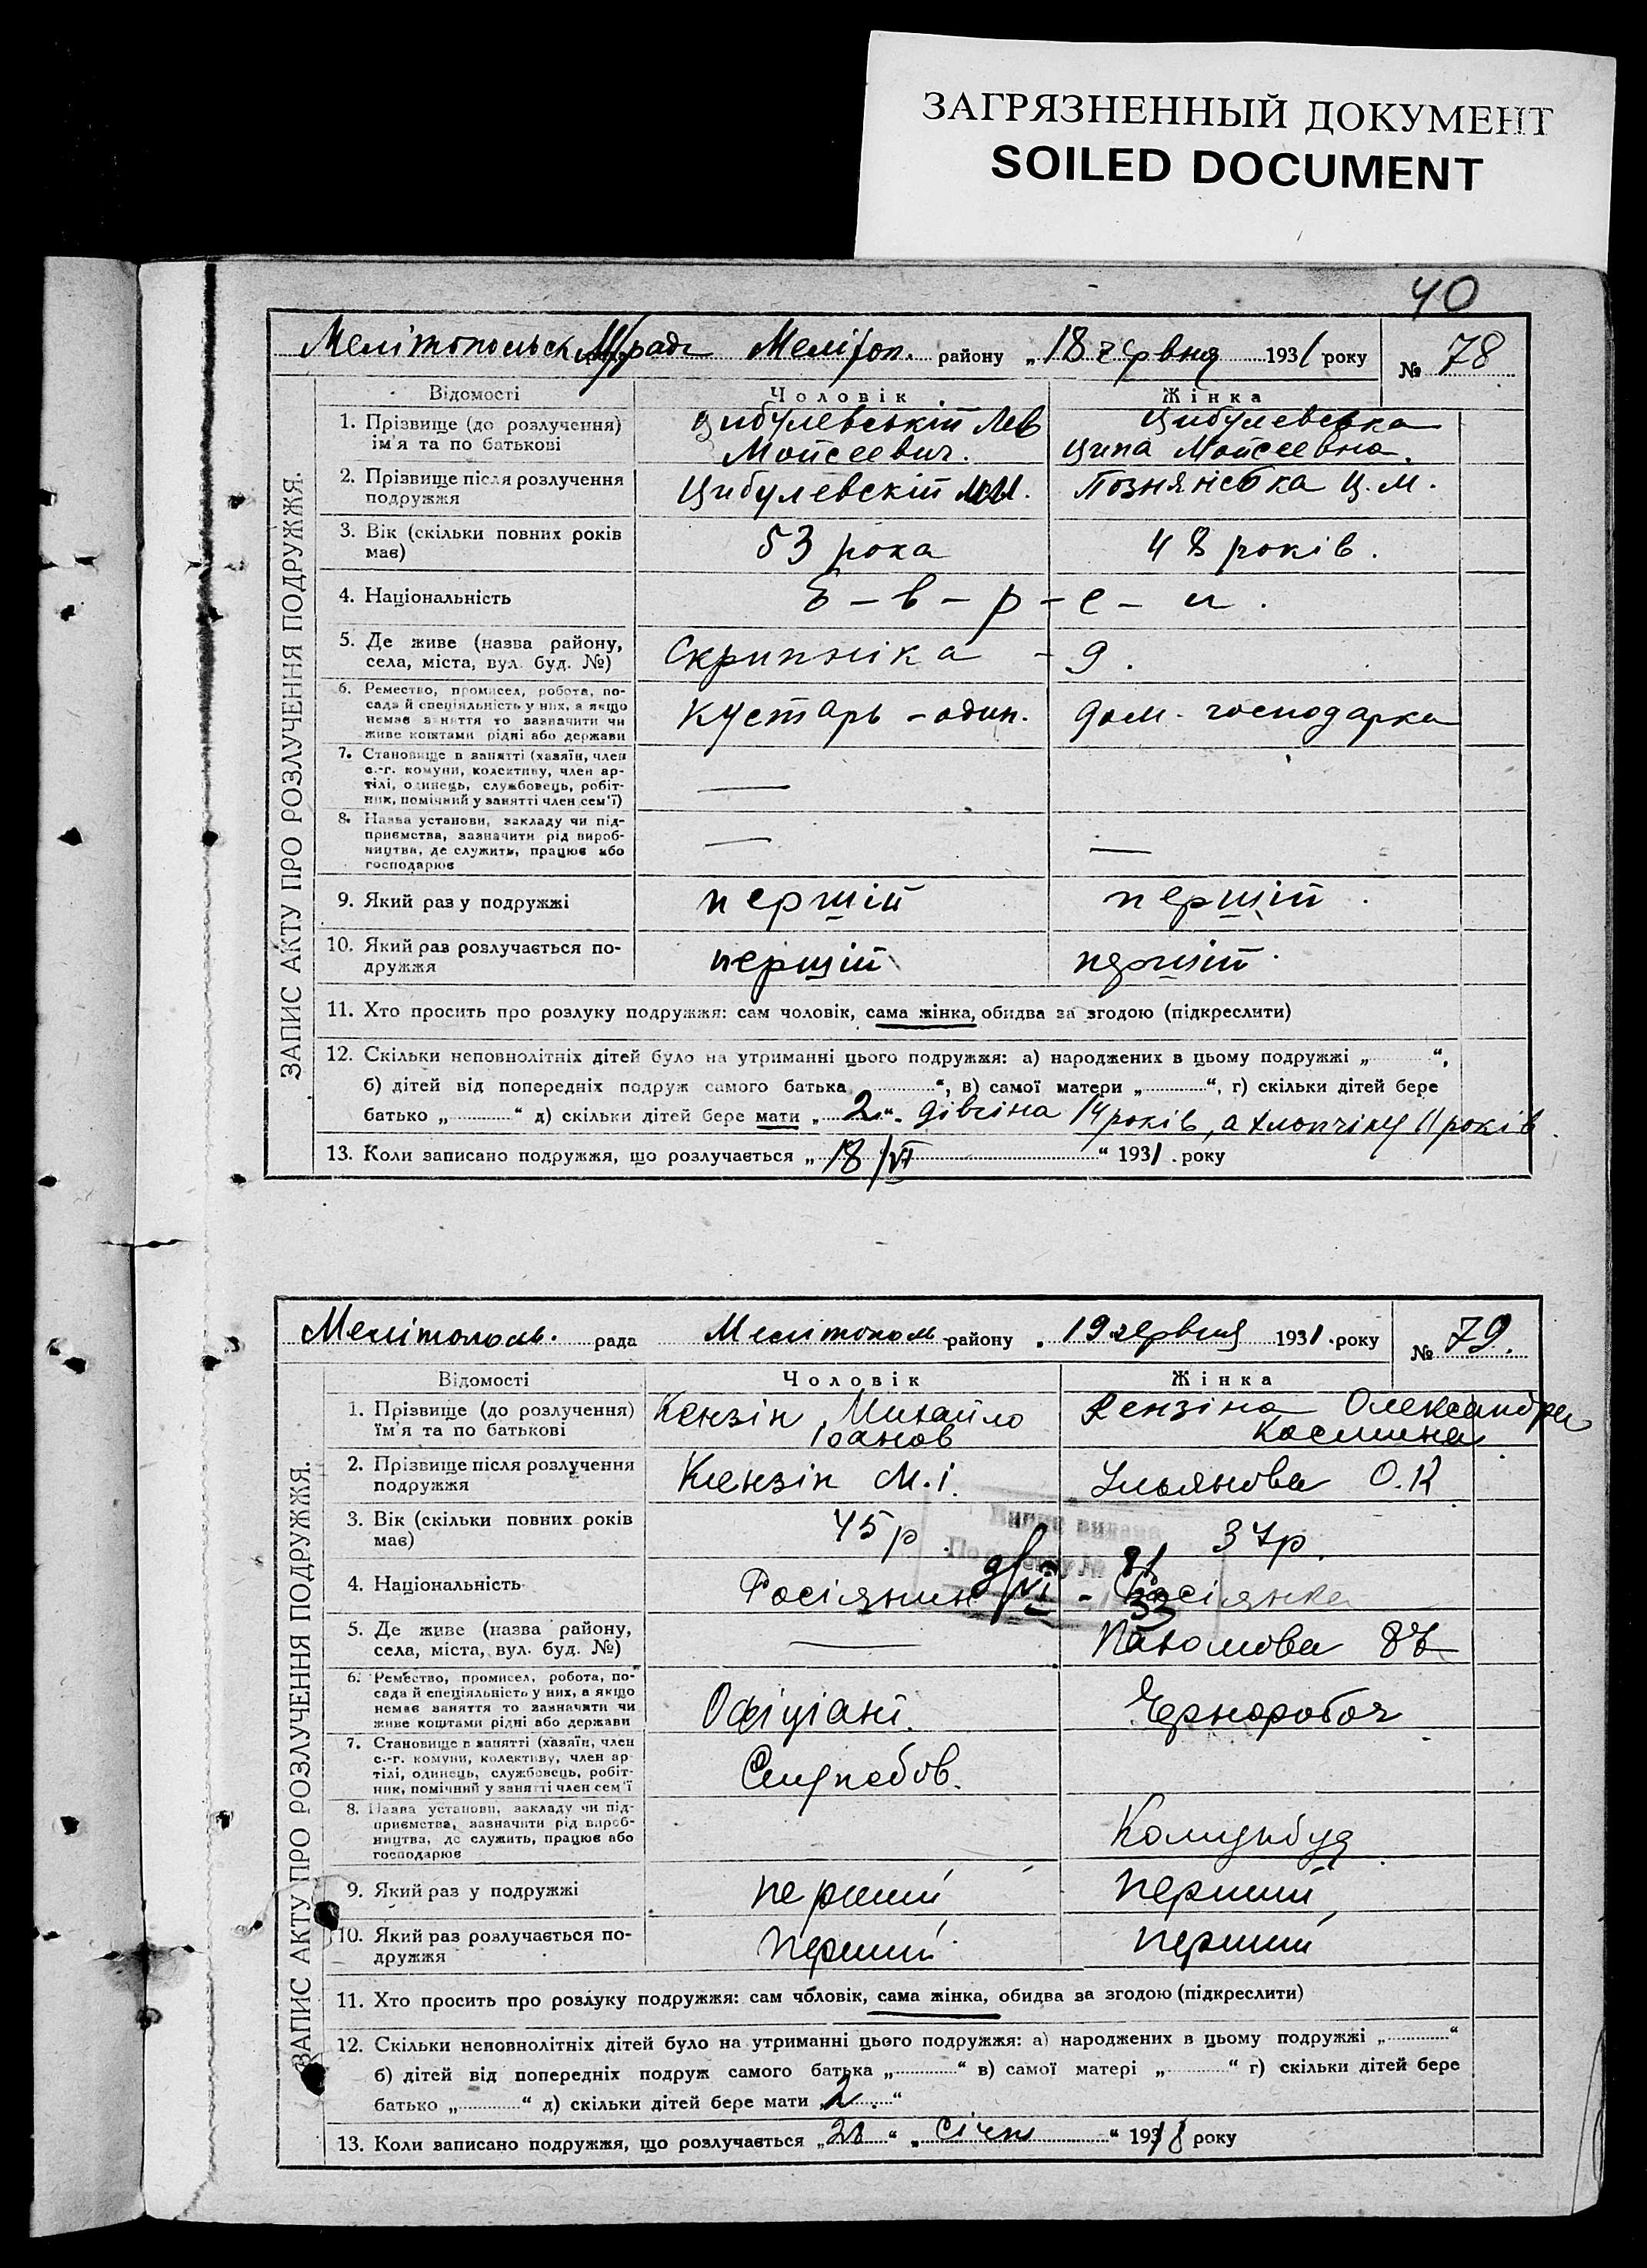 ЗАГРЯЗНЕННЫЙ ДОКУМЕНТ
SOILED DOCUMENT
40
ЗАПИС АКТУ ПРО РОЗЛУЧЕННЯ ПОДРУЖЖЯ.
Мелітопольск рада Меліtоп. району „18 червня 1931 року № 78
Відомості Чоловік Жінка
1. Прізвище (до розлучення) ім'я та по батькові
Цибулевський Лев Мойсеевич.
Цибулевська Ципа Мойсеевна.
2. Прізвище після розлучення подружжя
Цибулевскій
Познянська Ц. М.
3. Вік (скільки повних років має)
53 рока
48 років.
4. Національність
Е – в – р – е – и.
5. Де живе (назва району, села, міста, вул. буд. №)
Скрипніка - 9.
6. Ремество, промисел, робота, посада й спеціяльність у них, а якщо немає заняття то зазначити чи живе коштами рідні або держави
Кустарь – один.
дом. господарка
7. Становище в занятті (хазяїн, член с.-г. комуни, колективу, член артілі, одинець, службовець, робітник, помічний у занятті член сем'ї)
—
8. Назва установи, закладу чи підприємства, зазначити рід виробництва, де служить, працює або господарює
—
—
9. Який раз у подружжі
першій
першій.
10. Який раз розлучається подружжя
першій
першій.
11. Хто просить про розлуку подружжя: сам чоловік, сама жінка, обидва за згодою (підкреслити)
12. Скільки неповнолітніх дітей було на утриманні цього подружжя: а) народжених в цьому подружжі „............“,
б) дітей від попередніх подруж самого батька ............“, в) самої матери „............“, г) скільки дітей бере
батько „............“ д) скільки дітей бере мати „2“. дівчіна 14 років, а хлопчіну 11 років.
13. Коли записано подружжя, що розлучається „18/VI“ 1931. року
ЗАПИС АКТУ ПРО РОЗЛУЧЕННЯ ПОДРУЖЖЯ.
Мелітополь. рада Мелітополь району „19 червня 1931. року № 79.
Відомості Чоловік Жінка
1. Прізвище (до розлучення) їм'я та по батькові
Кензін Михайло Іванов
Кензіна Олександра
2. Прізвище після розлучення подружжя
Кензін М. І.
Ульянова О. К
3. Вік (скільки повних років має)
45 р.
37р.
4. Національність
Росіянин - Росіянка
5. Де живе (назва району, села, міста, вул. буд. №)
—
6. Ремество, промисел, робота, посада й спеціяльність у них, а якщо немає заняття то зазначити чи живе коштами рідні або держави
Офіціант.
Чорнороboч
7. Становище в занятті (хазяїн, член с.-г. комуни, колективу, член артілі, одинець, службовець, робітник, помічний у занятті член сем'ї
Службов.
8. Назва установи, закладу чи підприємства, зазначити рід виробництва, де служить, працює або господарює
Комунбуд
9. Який раз у подружжі
перший
перший
10. Який раз розлучається подружжя
перший
перший
11. Хто просить про розлуку подружжя: сам чоловік, сама жінка, обидва за згодою (підкреслити)
12. Скільки неповнолітніх дітей було на утриманні цього подружжя: а) народжених в цьому подружжі „............“
б) дітей від попередніх подруж самого батька „............“ в) самої матері „............“ г) скільки дітей бере
батько „............“ д) скільки дітей бере мати „2“
13. Коли записано подружжя, що розлучається „28“ „Січня“ 1918 року